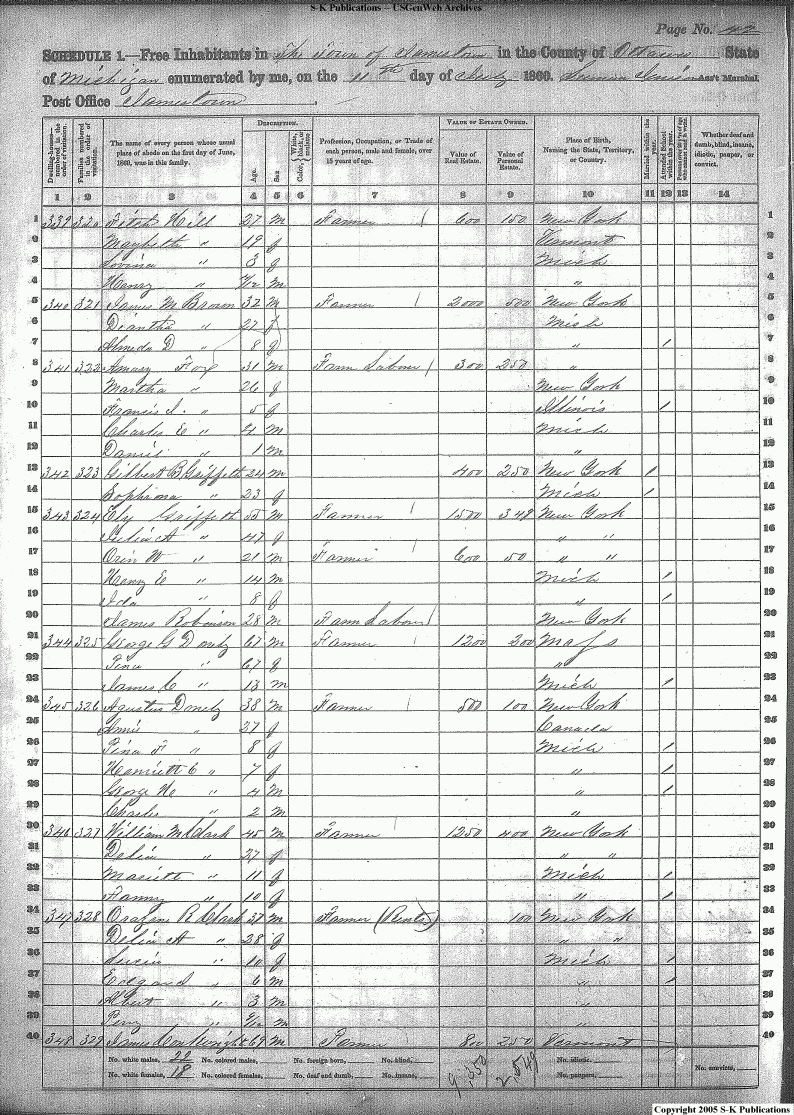 S-K Publications – USGenWeb Archives
Page No. 42
SCHEDULE 1.—Free Inhabitants in The Town of Jamestown in the County of Ottawa State
of Michigan enumerated by me, on the 11th day of July 1860. Ass't Marshal.
Post Office Jamestown
Dwelling-houses—numbered in the order of visitation.
Families numbered in the order of visitation.
The name of every person whose usual place of abode on the first day of June, 1860, was in this family.
DESCRIPTION.
Age.
Sex
Color, White, black, or mulatto.
Profession, Occupation, or Trade of each person, male and female, over 15 years of age.
VALUE OF ESTATE OWNED.
Value of Real Estate.
Value of Personal Estate.
Place of Birth, Naming the State, Territory, or Country.
Married within the year.
Attended School within the year.
Whether deaf and dumb, blind, insane, idiotic, pauper, or convict.
1 2 3 4 5 6 7 8 9 10 11 12 13 14
1 339 320 Hill 27 m Farmer / 600 150 New York 1
2 " 19 f Vermont 2
3 Lovina " 3 f Mich 3
4 Henry " m " 4
5 340 321 James M Brown 32 m Farmer / 2000 500 New York 5
6 Diantha " 27 f Mich 6
7 Almeda D " 8 f " / 7
8 341 322 Amasy Fox 31 m Farm Labour / 300 250 " 8
9 Martha " 26 f New York 9
10 Francis J. " 5 f Illinois / 10
11 Charles E " 4 m Mich 11
12 Daniel " 1 m " 12
13 342 323 Gilbert B Griffeth 24 m 400 250 New York / 13
14 Sophrona " 23 f Mich / 14
15 343 324 Ely Griffeth 55 m Farmer / 1500 348 New York 15
16 Julia A " 47 f " " 16
17 Orin W " 21 m Farmer 600 50 " " 17
18 Henry E " 14 m Mich / 18
19 Ida " 8 f " / 19
20 James Robinson 28 m Farm Labour / New York 20
21 344 325 George G 67 m Farmer / 1200 300 Mass 21
22 " 67 f " 22
23 James C " 13 m Mich / 23
24 345 326 Agustus 38 m Farmer / 500 100 New York 24
25 Annie " 37 f Canada 25
26 " 8 f Mich / 26
27 Henriett C " 7 f " / 27
28 George " 4 m " / 28
29 Charles " 2 m " 29
30 346 327 William M Clark 45 m Farmer / 1250 400 New York 30
31 Delia " 37 f " " 31
32 Mariett " 11 f Mich / 32
33 Fanny " 10 f " / 33
34 347 328 R Clark 37 m Farmer (Rents) 100 New York 34
35 Delia A " 28 f " " 35
36 Lucia " 10 f Mich / 36
37 Edgard " 6 m " / 37
38 Albert " 3 m " 38
39 Perry " m " 39
40 348 329 James 69 m Farmer 800 250 Vermont 40
No. white males, 22 No. colored males, No. foreign born, No. blind, No. idiotic, No. convicts,
No. white females, 18 No. colored females, No. deaf and dumb, No. insane, No. paupers,
9,350 2,549
Copyright 2005 S-K Publications